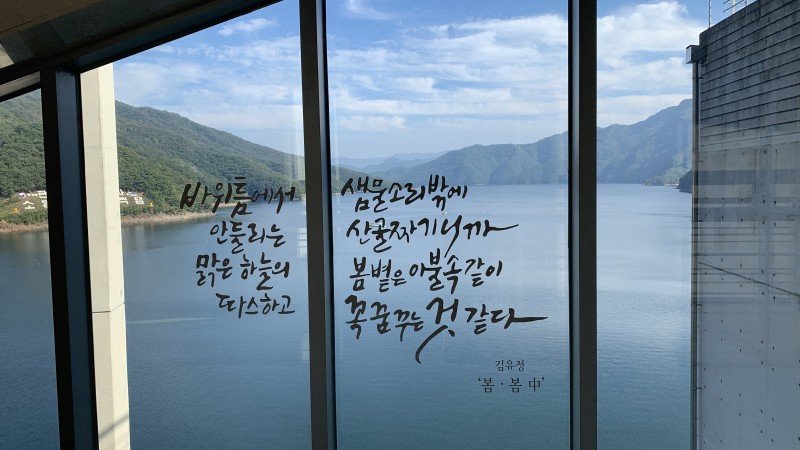 바위틈에서 샘물소리밖에
안들리는 산골짜기니까
맑은 하늘의 봄볕은 이불속같이
따스하고 꼭 꿈꾸는 것 같다
김유정
'봄·봄 中'